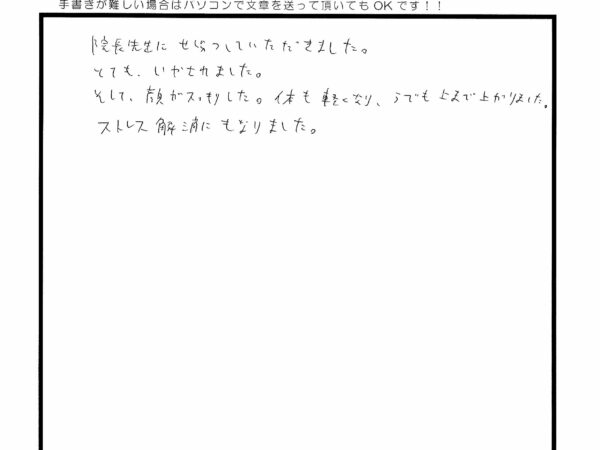 手書きが難しい場合はパソコンで文章を送って頂いてもOKです！！
院長先生に していただきました。
とても、いやされました。
そして、顔がスッキリした。体も軽くなり、うでも上まで上がりました。
ストレス解消にもなりました。